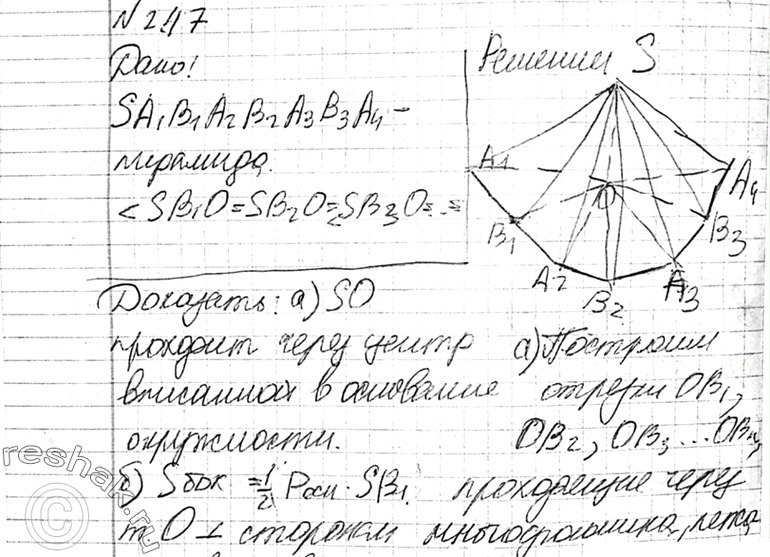 N 247
Дано:
SA₁B₁A₂B₂A₃B₃A₄ –
пирамида.
<SB₁O=SB₂O=SB₃O=..=
Решении S
A₁
O
A₄
B₁
B₃
A₂
A₃
B₂
Доказать: а) SO
проходит через центр
вписанной в основание
окружности.
б) Sбок =1/2 Pосн · SB₁.
а) Построим
отрезки OB₁,
OB₂, OB₃ ...OBₙ,
проходящие через
т. O ⊥ сторонам многогранника,
reshak.ru